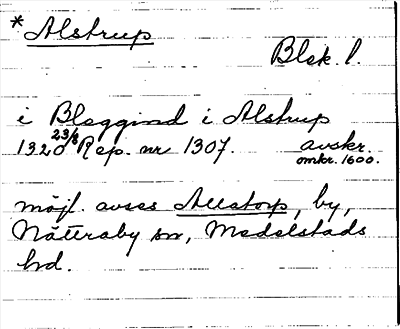 * Alstrup
Blek. l.
i Bleggind i Alstrup
1320 23/6 Rep. nr 1307. avskr.
omkr. 1600.
möjl. avses Allatorp, by,
Nättraby sn, Medelstads
hd.